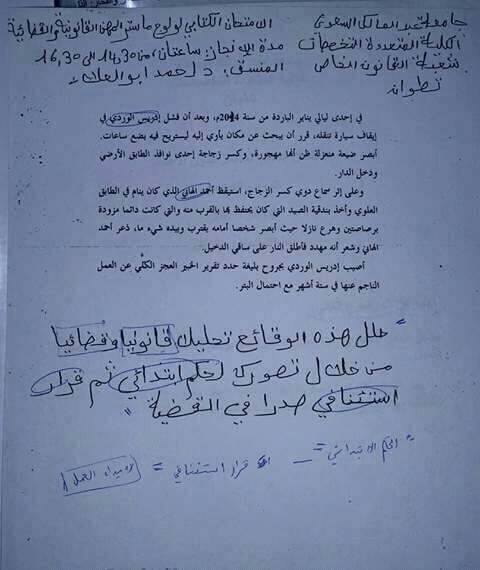 جامعة عبد المالك السعدي
الكلية المتعددة التخصصات
شعبة القانون الخاص
تطوان
الامتحان الكتابي لولوج ماستر المهن القانونية والقضائية
مدة الإنجاز: ساعتان من 14,30 الى 16,30
المنسق: د. احمد ابو العلاء
في إحدى ليالي يناير الباردة من سنة 2014م، وبعد أن فشل إدريس الوردي في
إيقاف سيارة تنقله، قرر أن يبحث عن مكان يأوي إليه ليستريح فيه بضع ساعات.
أبصر ضيعة منعزلة ظن أنها مهجورة، وكسر زجاجة إحدى نوافذ الطابق الأرضي
ودخل الدار.
وعلى إثر سماع دوي كسر الزجاج، استيقظ أحمد الهاني الذي كان ينام في الطابق
العلوي وأخذ بندقية الصيد التي كان يحتفظ بها بالقرب منه والتي كانت دائما مزودة
برصاصتين وهرع نازلا حيث أبصر شخصا أمامه يقترب وبيده شيء ما، ذعر أحمد
الهاني وشعر أنه مهدد فأطلق النار على ساقي الدخيل.
أصيب إدريس الوردي بجروح بليغة حدد تقرير الخبير العجز الكلي عن العمل
الناجم عنها في ستة أشهر مع احتمال البتر.
"حلل هذه الوقائع تحليلا قانونيا وقضائيا
من خلال تصورك لحكم ابتدائي ثم قرار
استئنافي صدرا في القضية"
الحكم الابتدائي =
قرار استئنافي =